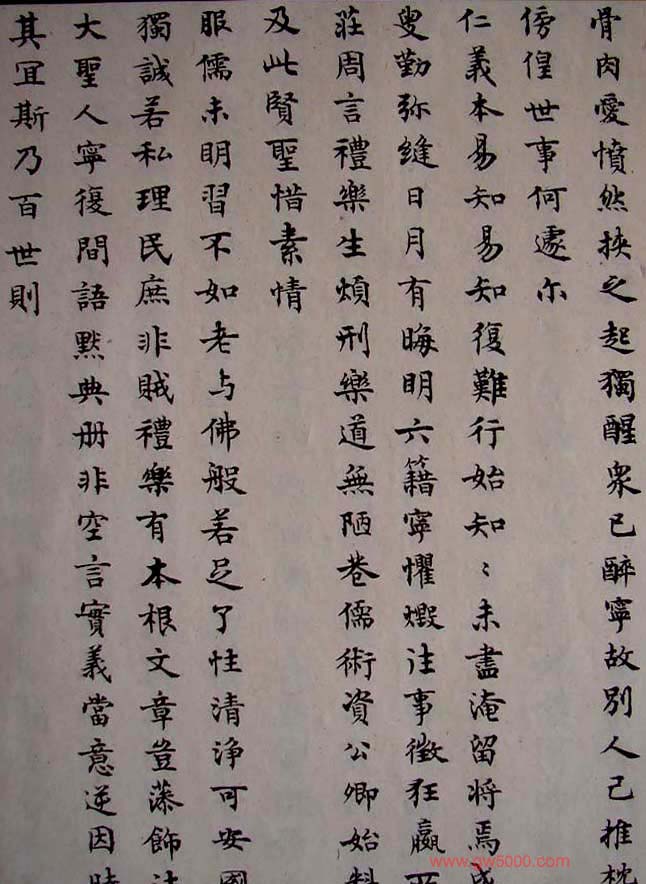 骨肉愛憤然挾之起獨醒衆已醉寧故別人己推枕
傍偟世事何遽尔
仁義本易知易知復難行始知〻未盡淹留将焉
叟勤弥縫日月有晦明六籍寧懼燬往事徴狂嬴
莊周言禮樂生煩刑樂道無陋巷儒術資公卿始料
及此賢聖惜素情
服儒未明習不如老与佛般若足了性清浄可安國
獨誠若私理民庶非賊禮樂有本根文章豈藻飾
大聖人寧復間語黙典册非空言實義當意逆因時
其宜斯乃百世則
www.gw5000.com